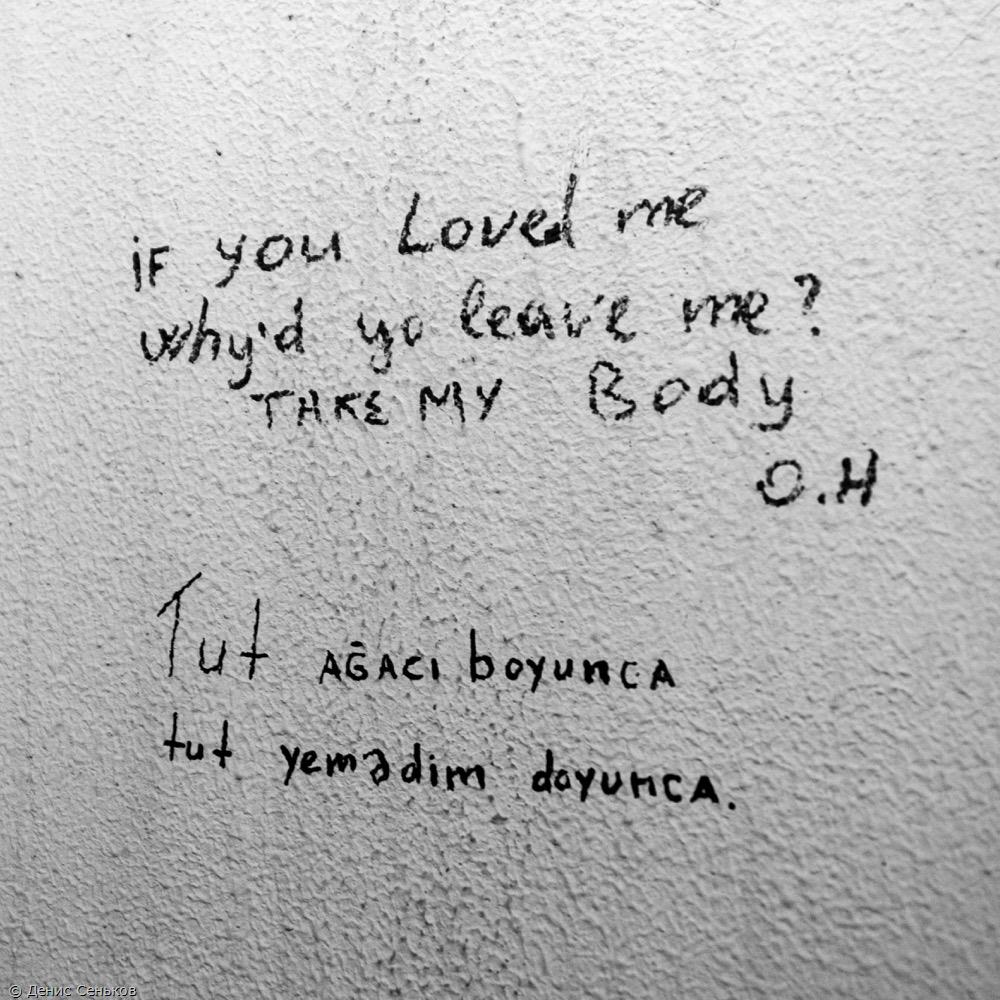 iF you Loved me
why'd yo leave me?
TAKE MY Body
O.H
Tut AĞACI boyunca
tut yemədim doyunca.
© Денис Сеньков